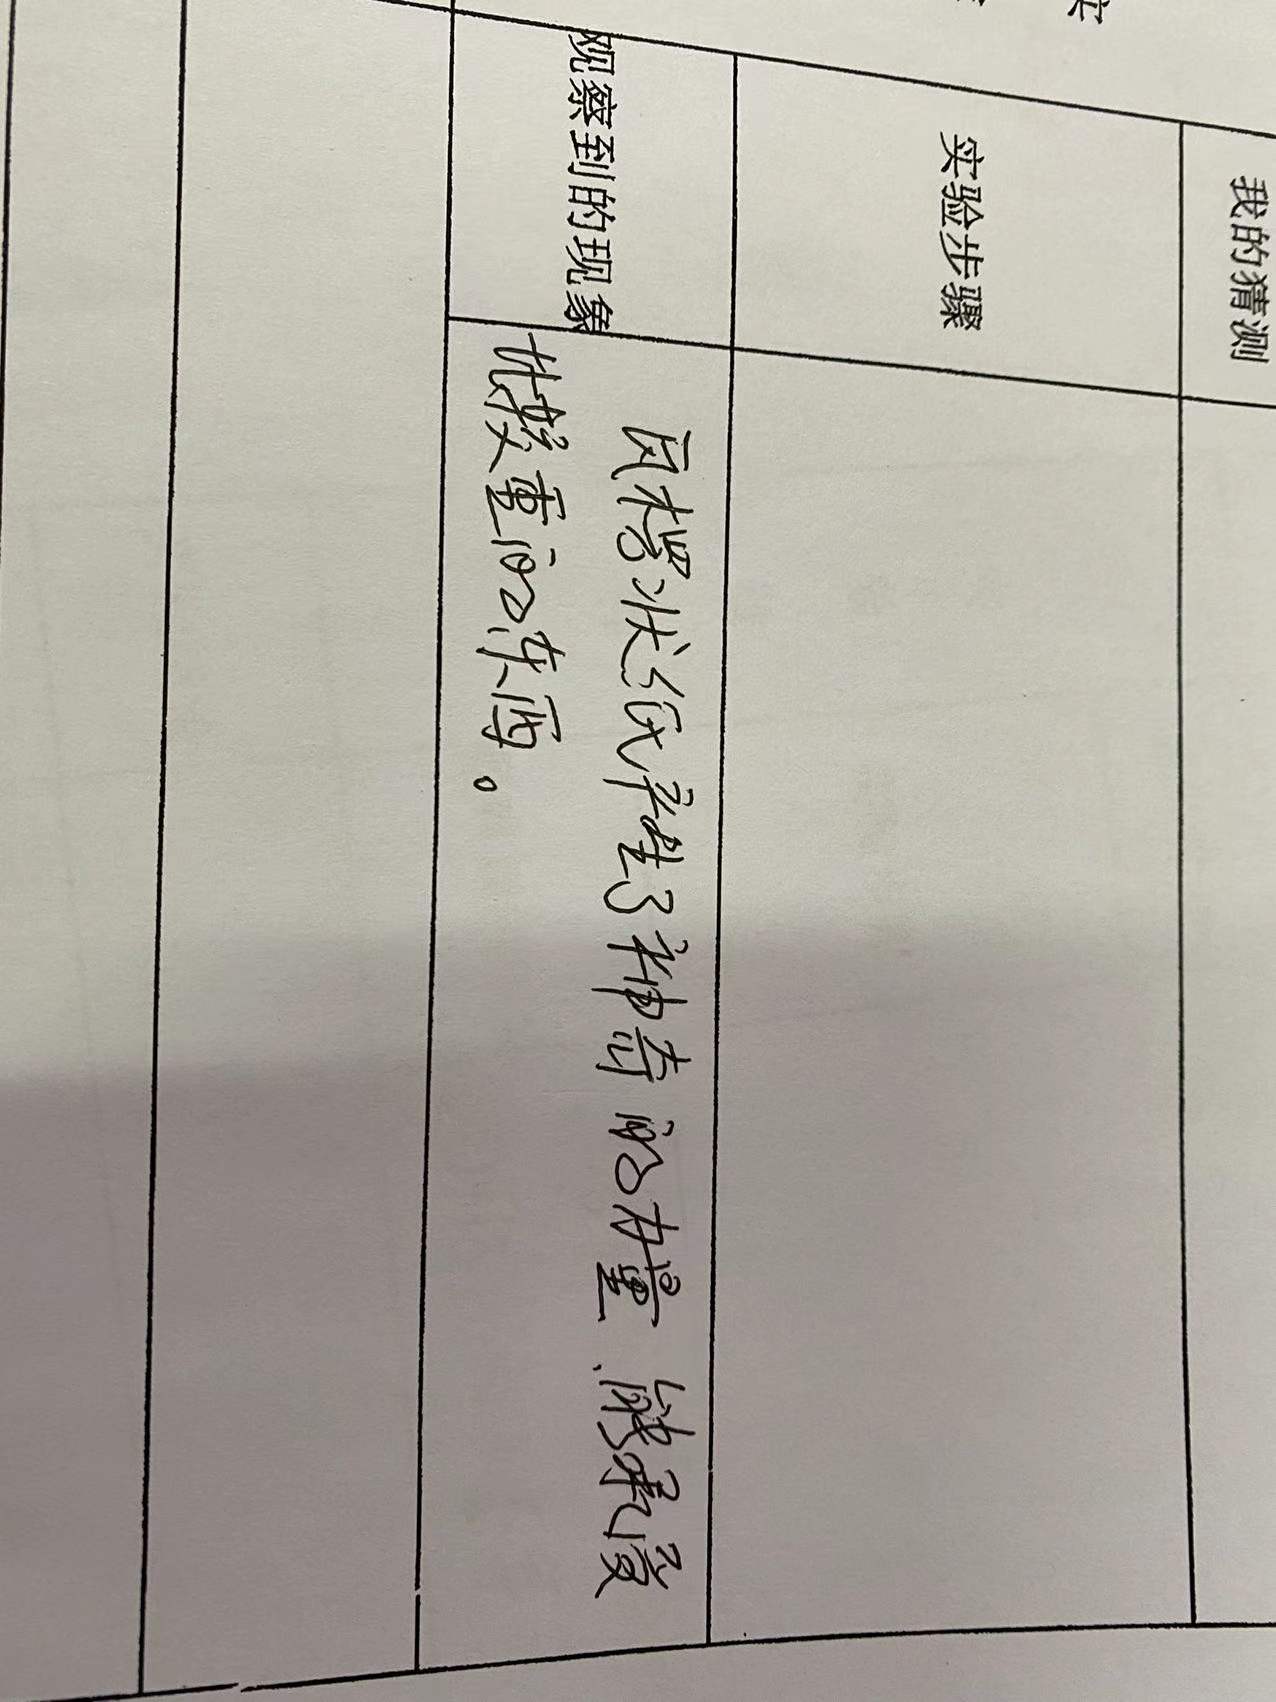 我的猜测
实验步骤
观察到的现象
瓦楞状纸产生了神奇的力量,能承受
比较重的东西。